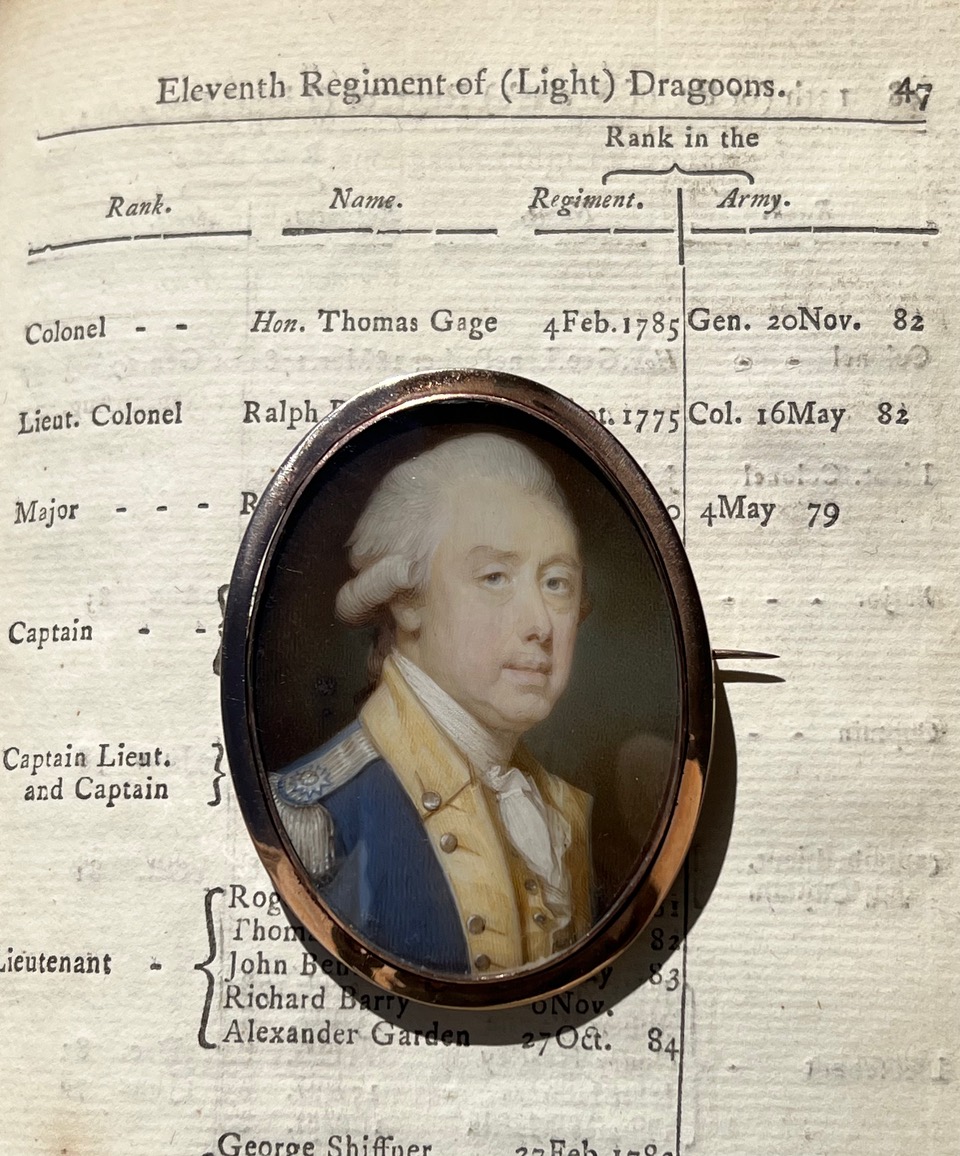 Eleventh Regiment of (Light) Dragoons. 47
Rank in the
Rank. Name. Regiment. Army.
Colonel - - Hon. Thomas Gage 4Feb.1785 Gen. 20Nov. 82
Lieut. Colonel Ralph 1775 Col. 16May 82
Major - - - 4May 79
Captain - -
Captain Lieut.
and Captain
Thom
82
Lieutenant - John Ben 83
Richard Barry Nov.
Alexander Garden 27Oct. 84
George Shiffner 27Feb